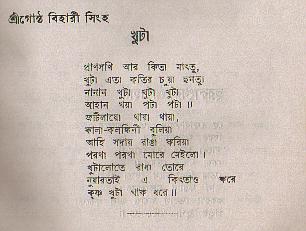 শ্রীগোষ্ঠ বিহারী সিংহ
খুটা
প্রাণসখি আর কিতা মাংতু,
খুটা এতা কতির চুয়া হুনতু।
নানান খুটা খুটা খুটা
আহান থয়া পটা পটা ॥
জটীলায়ো থায়া থায়া,
কালা-কলঙ্কিনী বুলিয়া
আহি সদায় রাঙা করিয়া
পরথা পরথা মোরে মেইলো।
খুটালোতে রাধা তোরে
নুয়ারতাই এ কিংতাও করে
কৃষ্ণ খুটা থাক ধরে ॥